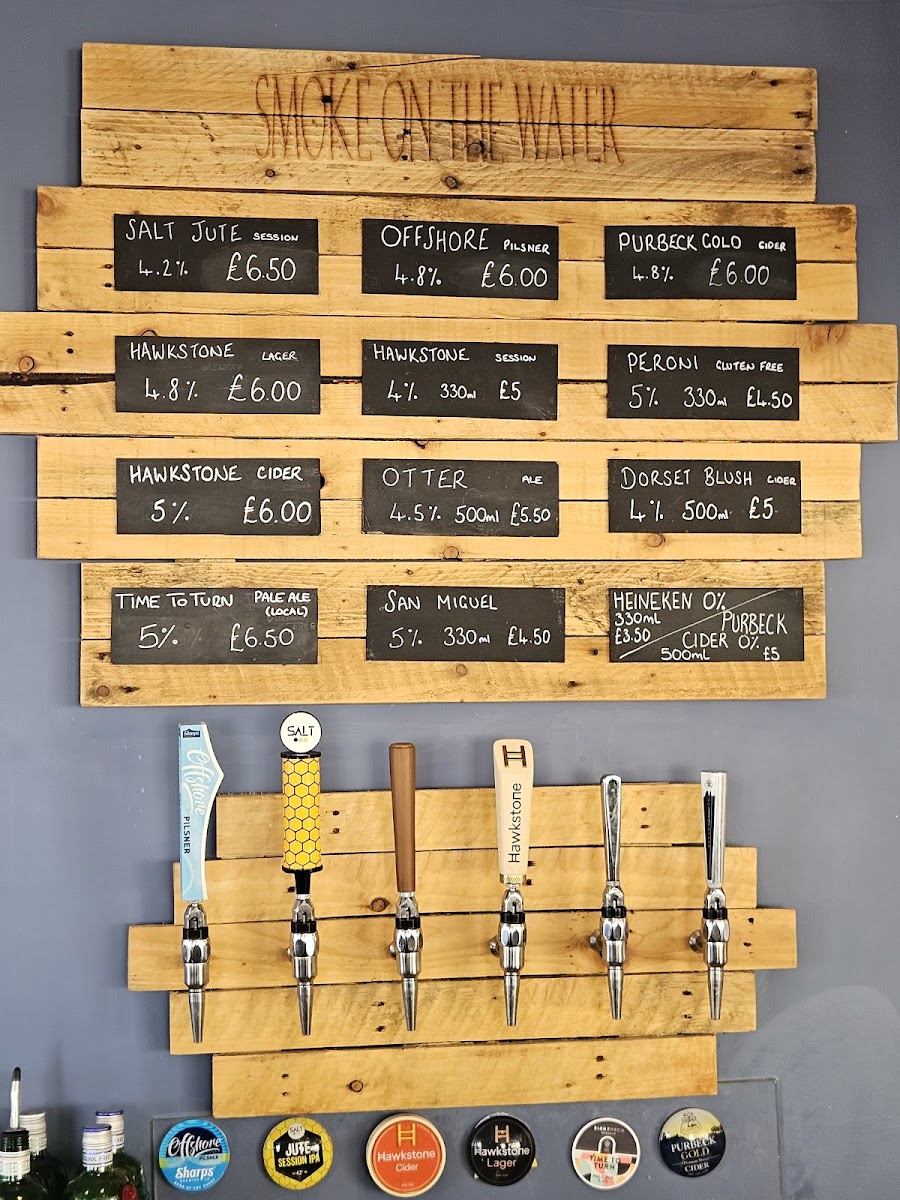 SMOKE ON THE WATER
SALT JUTE SESSION
4.2% £6.50
OFFSHORE PILSNER
4.8% £6.00
PURBECK GOLD CIDER
4.8% £6.00
HAWKSTONE LAGER
4.8% £6.00
HAWKSTONE SESSION
4% 330ml £5
PERONI GLUTEN FREE
5% 330ml £4.50
HAWKSTONE CIDER
5% £6.00
OTTER ALE
4.5% 500ml £5.50
DORSET BLUSH CIDER
4% 500ml £5
TIME TO TURN PALE ALE
(LOCAL)
5% £6.50
SAN MIGUEL
5% 330ml £4.50
HEINEKEN 0%
330ML
£3.50
PURBECK
CIDER 0%
500ML £5
Sharp's
Offshore
PILSNER
SALT
Hawkstone
Offshore
PILSNER
Sharp's
SALT
JUTE
SESSION IPA
Hawkstone
Cider
Hawkstone
Lager
TIME TO
TURN
PURBECK
GOLD
CIDER